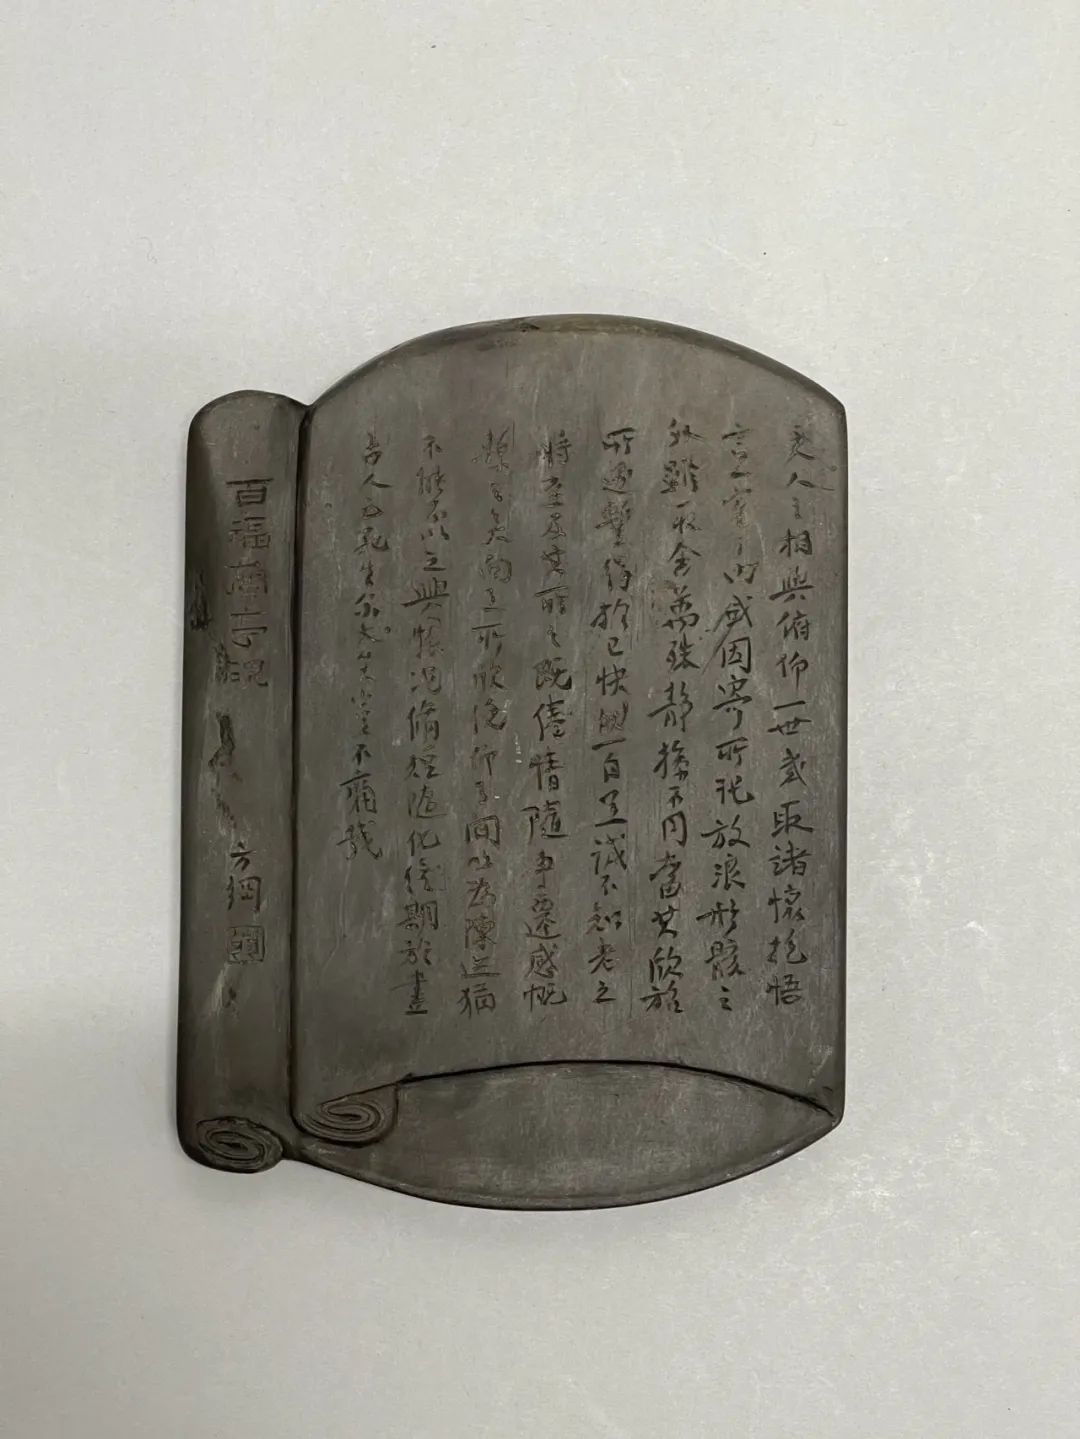 夫人之相與俯仰一世或取諸懷抱悟
言一室之内或因寄所託放浪形骸之
外雖取舍萬殊靜躁不同當其欣於
所遇暫得於己快然自足誠不知老之
將至及其所之既倦情隨事遷感慨
係之矣向之所欣俛仰之間以為陳迹猶
不能不以之興懷況脩短隨化終期於盡
古人云死生亦大矣豈不痛哉
百福蘭亭硯
方綱